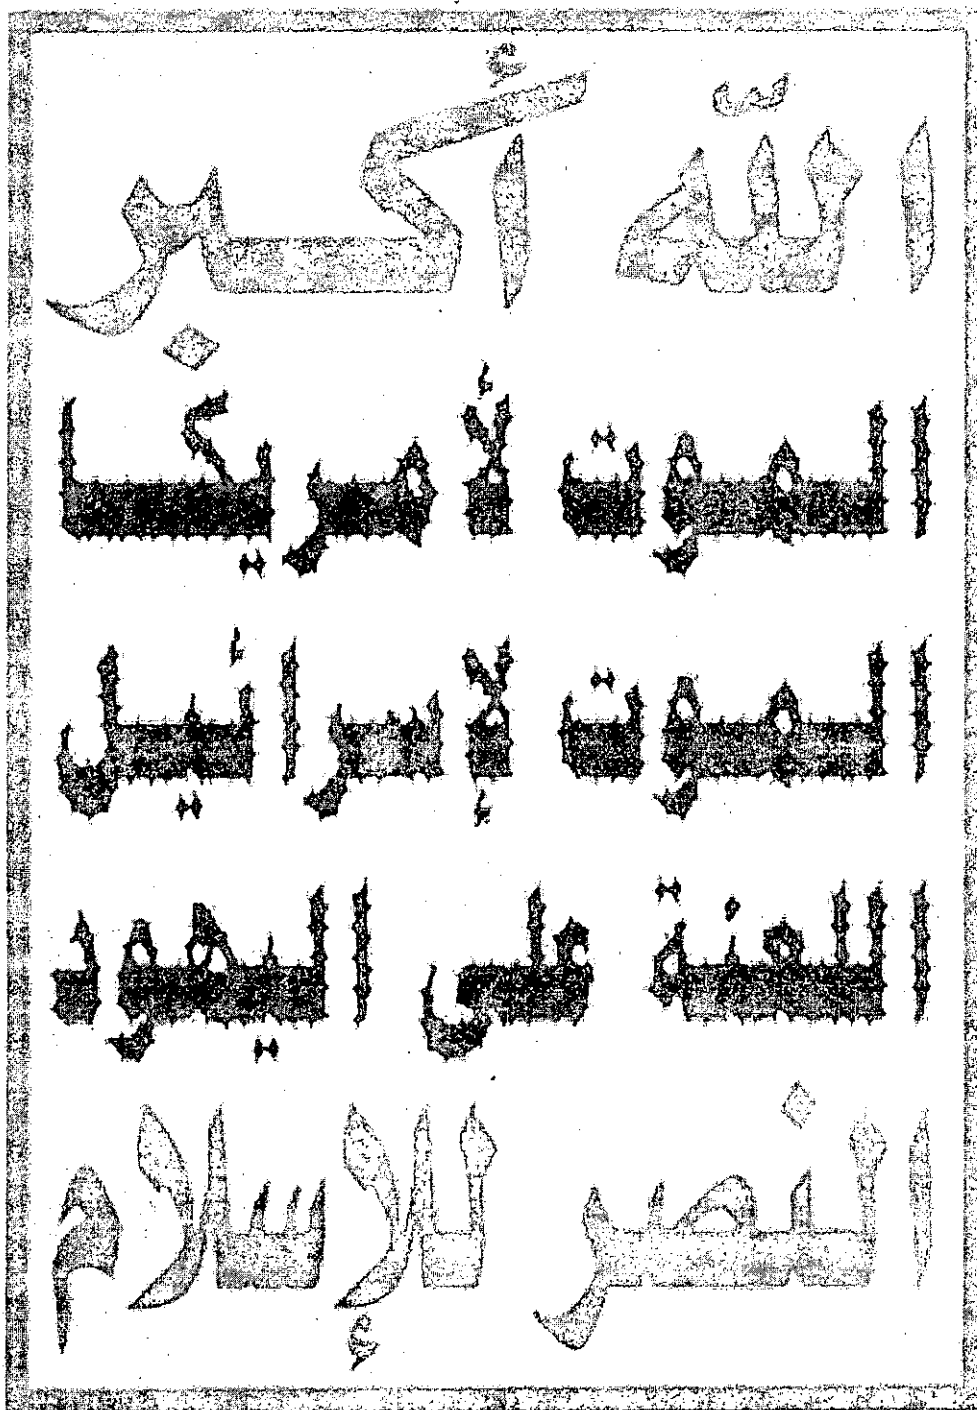 الله أكبر
الموت لأمريكا
الموت لإسرائيل
اللعنة على اليهود
النصر للإسلام